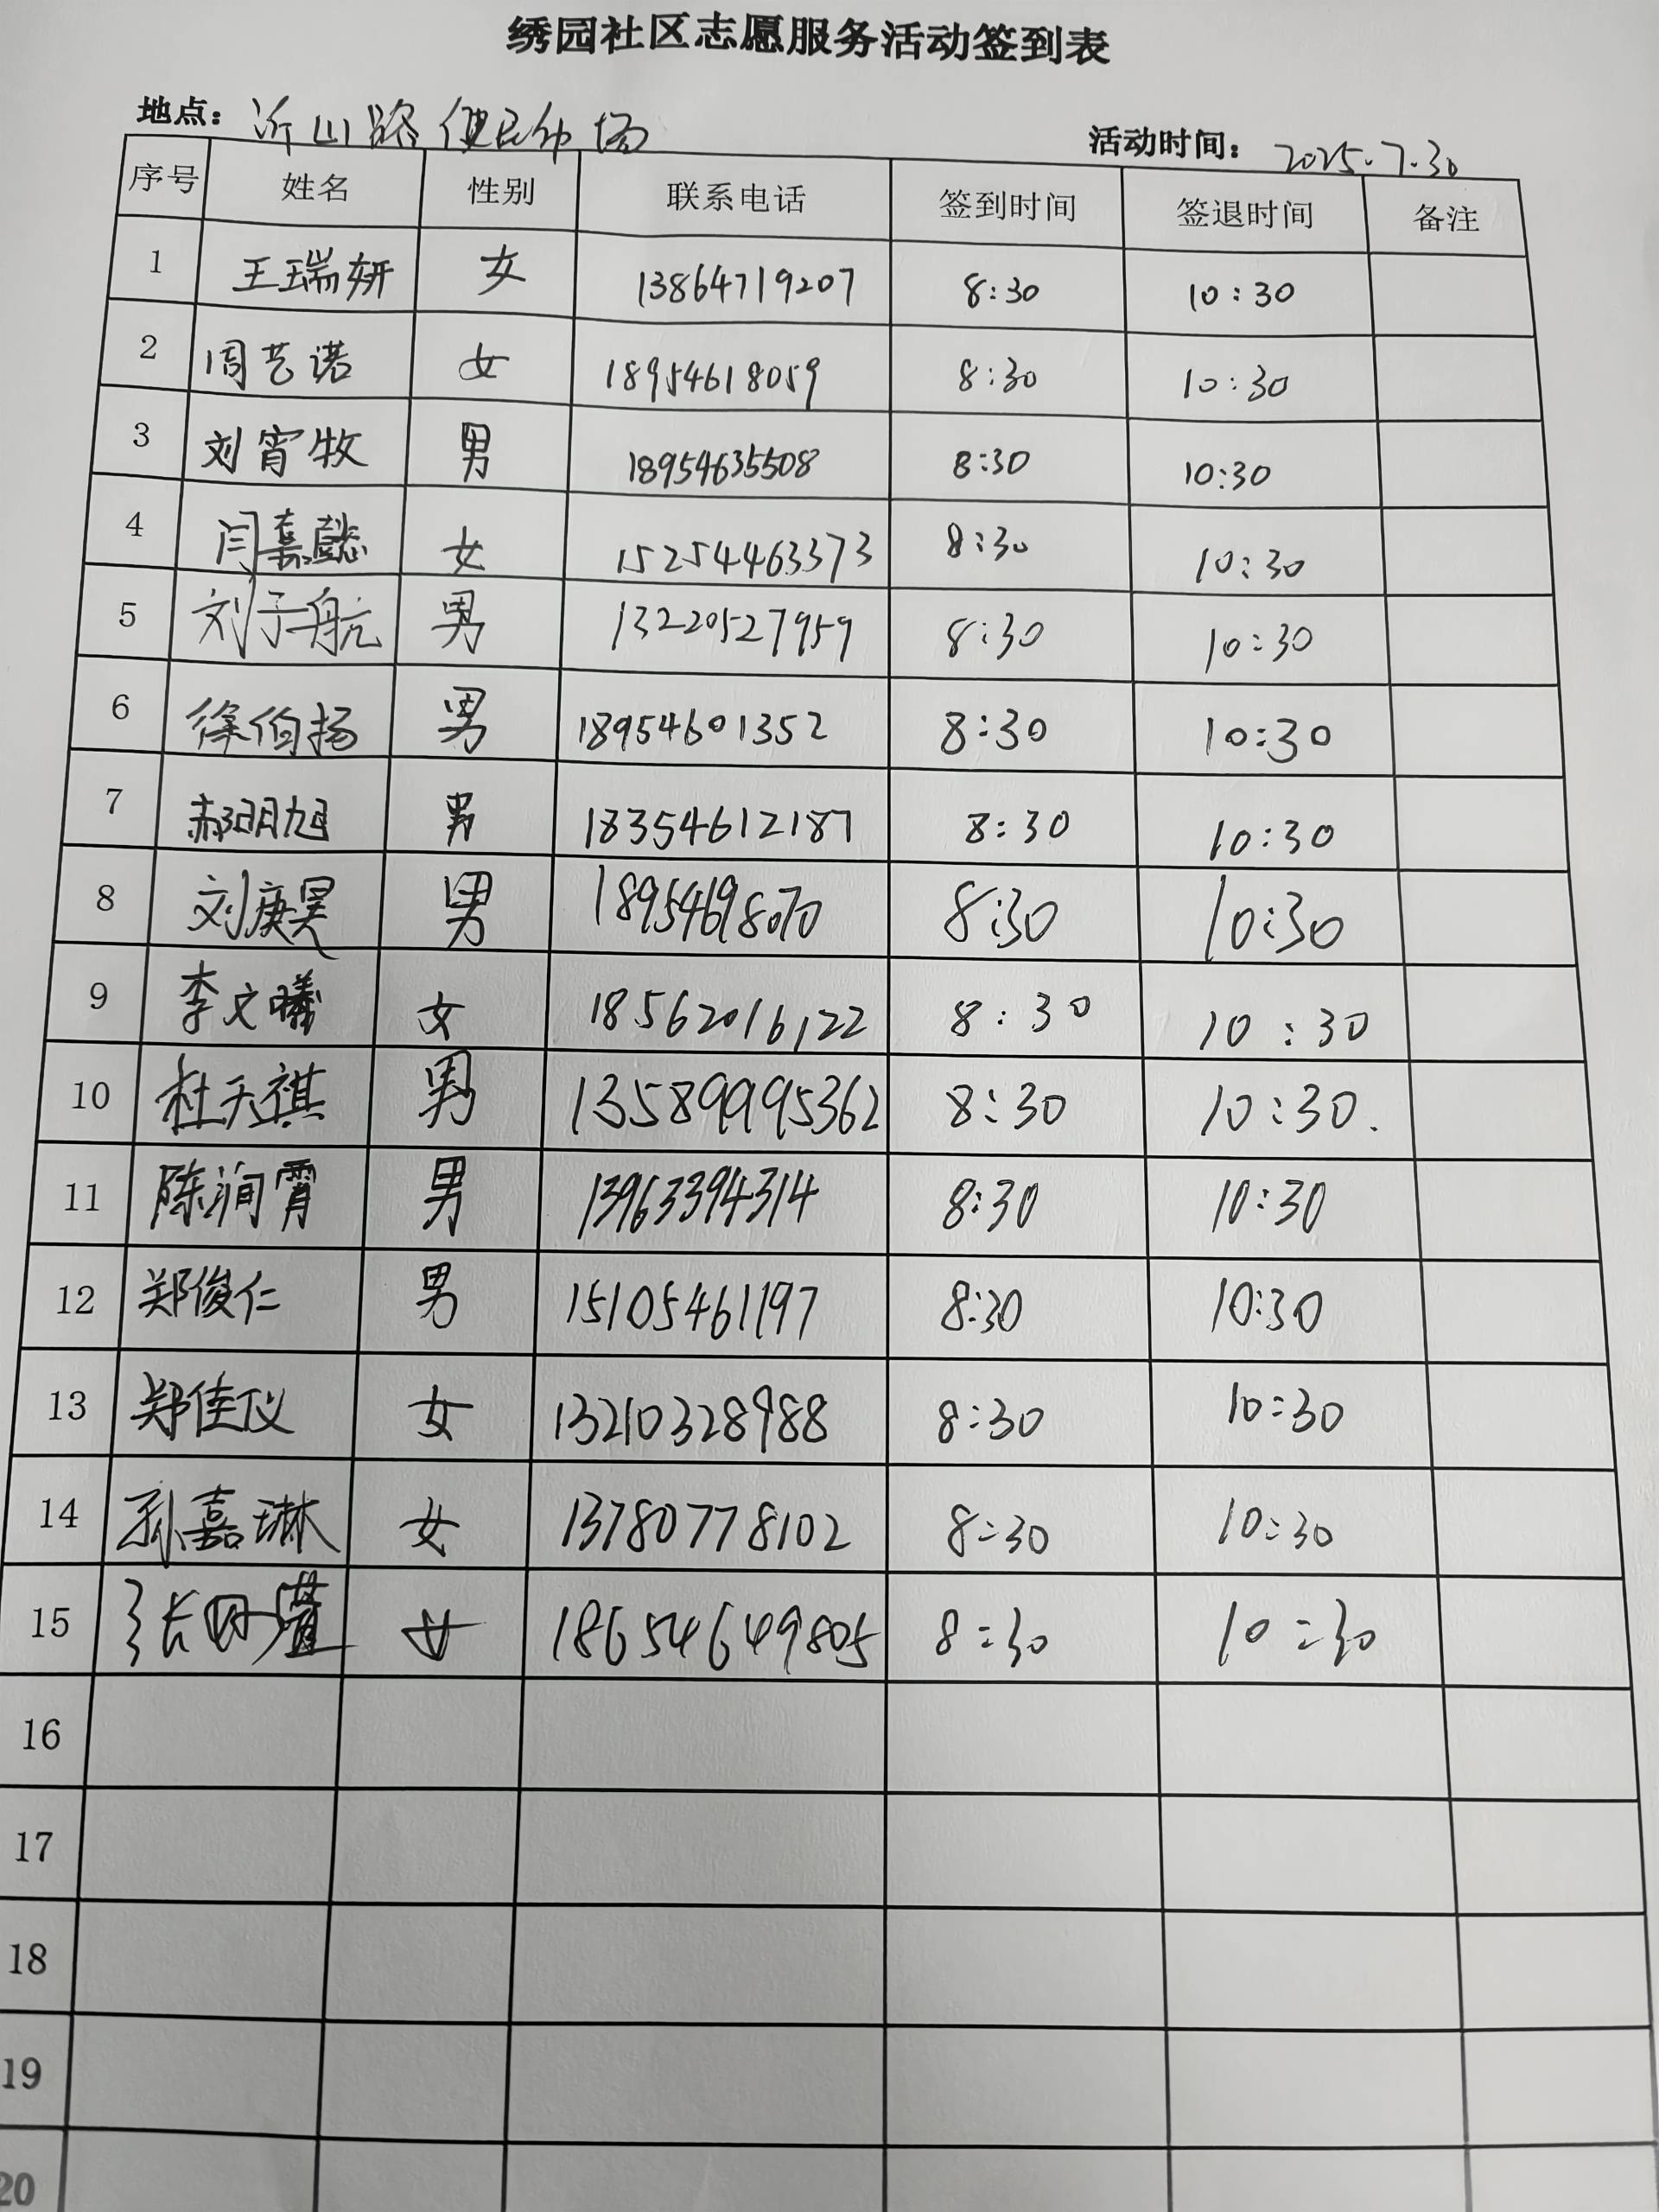 绣园社区志愿服务活动签到表
地点: 沂山路便民市场 活动时间: 2025.7.30
序号 姓名 性别 联系电话 签到时间 签退时间 备注
1 王瑞妍 女 13864719207 8:30 10:30
2 周艺诺 女 18954618059 8:30 10:30
3 刘宵牧 男 18954635508 8:30 10:30
4 闫嘉懿 女 15254463373 8:30 10:30
5 刘子航 男 13220527959 8:30 10:30
6 徐伯扬 男 18954601352 8:30 10:30
7 郝明旭 男 18354612187 8:30 10:30
8 刘庚昊 男 18954698070 8:30 10:30
9 李文曦 女 18562016122 8:30 10:30
10 杜天祺 男 13589995362 8:30 10:30.
11 陈润霄 男 13963394314 8:30 10:30
12 郑俊仁 男 15105461197 8:30 10:30
13 郑佳仪 女 13210328988 8:30 10:30
14 孙嘉琳 女 13780778102 8:30 10:30
15 张 女 18654649805 8:30 10:30
16
17
18
19
20